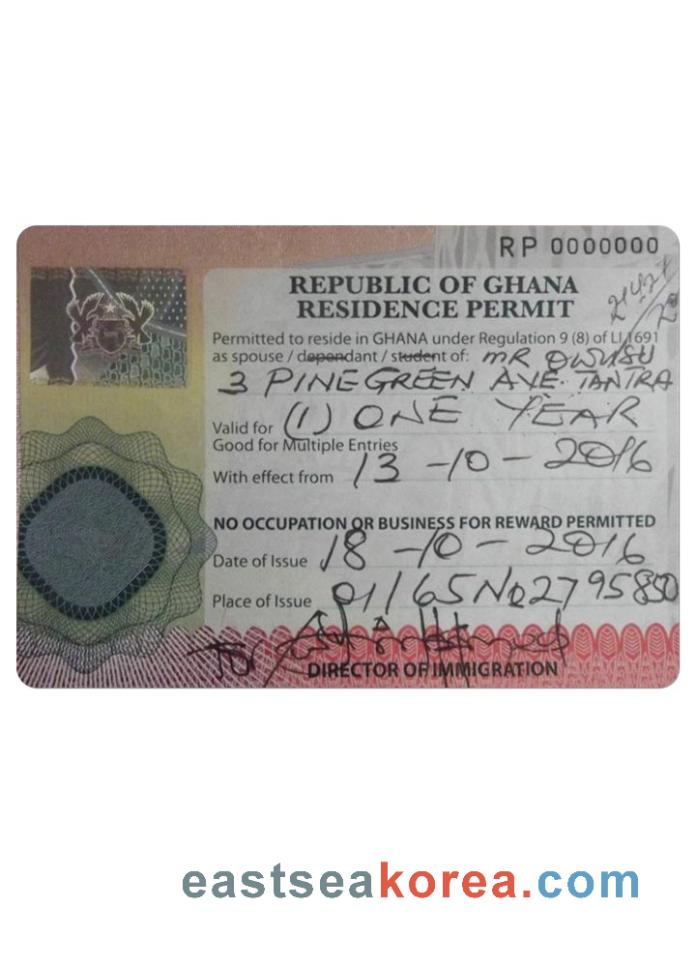 RP 0000000
REPUBLIC OF GHANA
RESIDENCE PERMIT
Permitted to reside in GHANA under Regulation 9 (8) of LI 1691
as spouse / dependant / student of: MR OWUSU
3 PINEGREEN AVE. TANTRA
Valid for (1) ONE YEAR
Good for Multiple Entries
With effect from 13-10-2016
NO OCCUPATION OR BUSINESS FOR REWARD PERMITTED
Date of Issue 18-10-2016
Place of Issue 01/165 No 2795850
DIRECTOR OF IMMIGRATION
eastseakorea.com